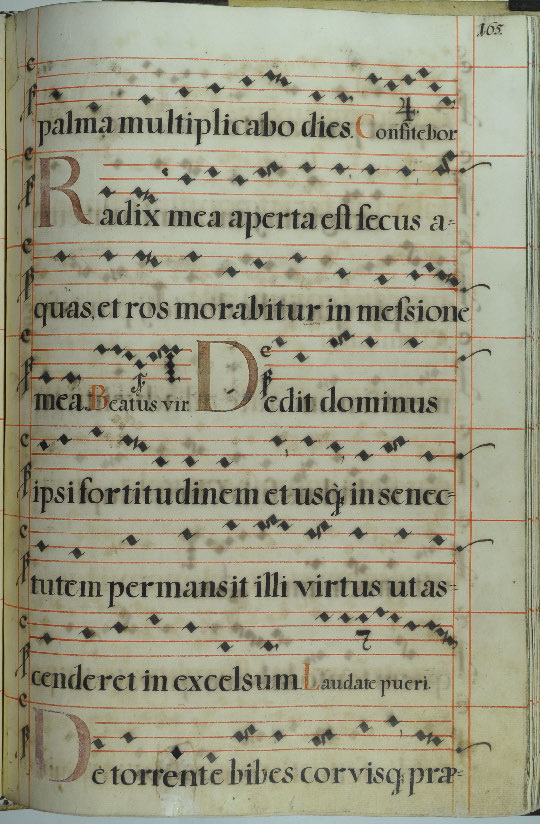 165
palma multiplicabo dies. Confitebor
4
Radix mea aperta est secus a=
quas, et ros morabitur in messione
mea. Beatus vir Dedit dominus
ipsi fortitudinem et usq; in senec=
tutem permansit illi virtus ut as=
cenderet in excelsum Laudate pueri.
7
De torrente bibes corvisq; præ=